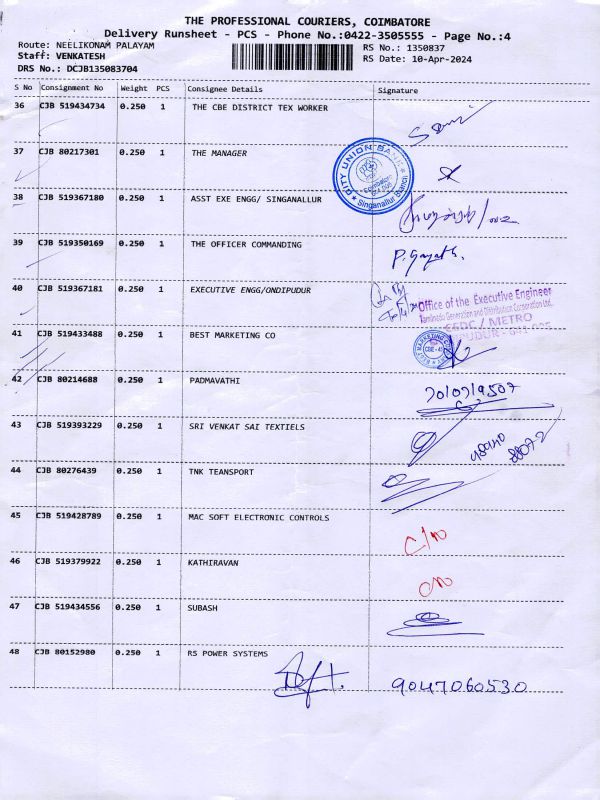 THE PROFESSIONAL COURIERS, COIMBATORE
Delivery Runsheet - PCS - Phone No.:0422-3505555 - Page No.:4
Route: NEELIKONAM PALAYAM
RS No.: 1350837
Staff: VENKATESH
RS Date: 10-Apr-2024
DRS No.: DCJB135083704
S No Consignment No Weight PCS Consignee Details Signature
36 CJB 519434734 0.250 1 THE CBE DISTRICT TEX WORKER
37 CJB 80217301 0.250 1 THE MANAGER
CITY UNION BANK
Singanallur Branch
38 CJB 519367180 0.250 1 ASST EXE ENGG/ SINGANALLUR
39 CJB 519350169 0.250 1 THE OFFICER COMMANDING
P. Gayath.
40 CJB 519367181 0.250 1 EXECUTIVE ENGG/ONDIPUDUR
Office of the Executive Engineer
Tamilnadu Generation and Distribution Corporation Ltd.
METRO
41 CJB 519433488 0.250 1 BEST MARKETING CO
42 CJB 80214688 0.250 1 PADMAVATHI
43 CJB 519393229 0.250 1 SRI VENKAT SAI TEXTIELS
44 CJB 80276439 0.250 1 TNK TEANSPORT
45 CJB 519428789 0.250 1 MAC SOFT ELECTRONIC CONTROLS
46 CJB 519379922 0.250 1 KATHIRAVAN
47 CJB 519434556 0.250 1 SUBASH
48 CJB 80152980 0.250 1 RS POWER SYSTEMS
9047060530